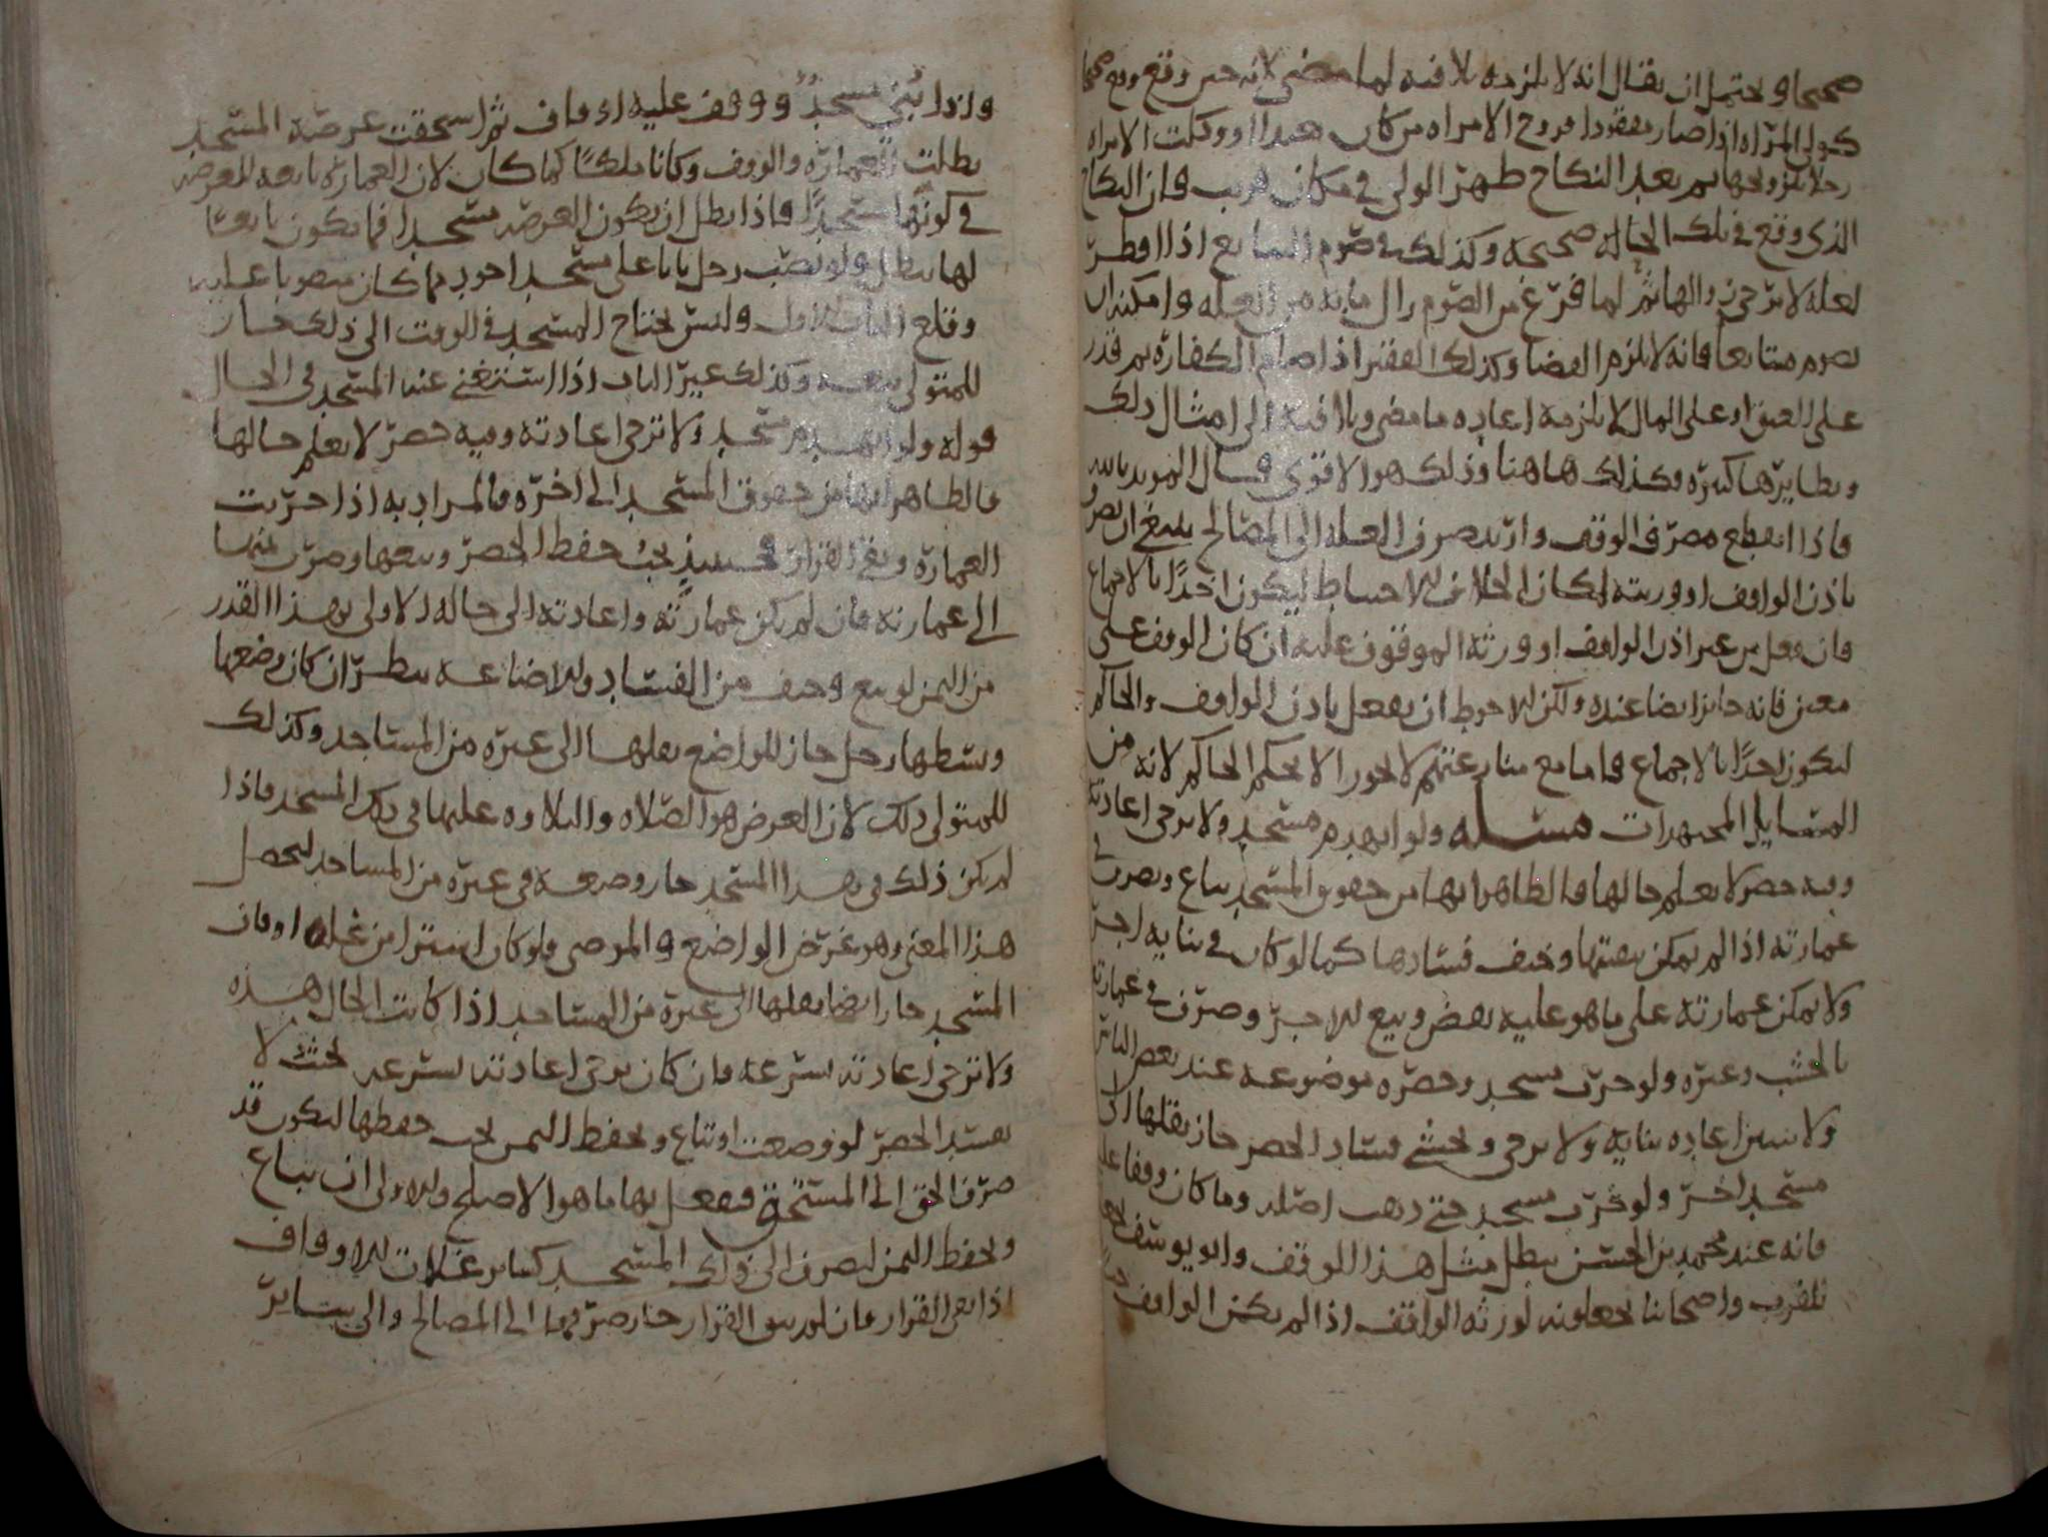 صحيحا ويحتمل ان يقال انه لا يلزمه تلافيه لما مضى لانه حين وقع وقع صحيحا
كولي المرأة اذا صار مفقودا فزوج الامراه من كان بعيدا او وكلت الامراه
رجلا يزوجها ثم بعد النكاح ظهر الولي في مكان قريب فان النكاح
الذي وقع في تلك الحالة صحيحة وكذلك في صوم المتابع اذا افطر
لعلة لا ترجى زوالها ثم لما فرغ من الصوم زال ما به من العلة وامكنه ان
يصوم متتابعا فانه لا يلزم القضا وكذلك الفقير اذا صام الكفارة ثم قدر
على العتق او على المال لا يلزمه اعاده ما مضى وتلافيه الى امثال ذلك
ونظايرها كثيره وكذلك هاهنا وذلك هو الاقوى قال المويد بالله
فاذا انقطع مصرف الوقف واريد صرف الغلة الى المصالح ينبغي ان يصرف
باذن الواقف او ورثته لمكان الخلاف للاحتياط ليكون اخذا بالاجماع
فان فعل من غير اذن الواقف او ورثة الموقوف عليه ان كان الوقف على
معين فانه جايز ايضا عنده ولكن الاحوط ان يفعل باذن الواقف والحاكم
ليكون اخذا بالاجماع فاما مع منازعتهم لا يجوز الا بحكم الحاكم لانه من
المسايل المجتهدات مسئلة ولو انهدم مسجد ولا يرجى اعادته
وفيه حصر لا يعلم حالها فالظاهر انها من حقوق المسجد يباع ويصرف في
عمارته اذا لم يمكن تبقيتها وخيف فسادها كما لو كان في بنايه اجر
ولا يمكن عمارته على ما هو عليه نقض وبيع الاجر وصرف في عمارته
بالخشب وغيره ولو خرب مسجد وحصره موضوعة عند بعض الناس
ولا يتيسر اعاده بنايه ولا يرجى ويخشى فساد الحصر جاز نقلها الى
مسجد اخر ولو خرب مسجد حتى ذهب اصله وما كان وقفا عليه
فانه عند محمد بن الحسن يبطل مثل هذا الوقف وابو يوسف
للقرب واصحابنا يجعلونه لورثة الواقف اذا لم يكن الواقف
واذا بني مسجد ووقف عليه اوقاف ثم استحقت عرصة المسجد
بطلت العمارة والوقف وكانا ملكا كما كان لان العمارة تابعة للعرصة
في كونها مسجدا فاذا بطل ان يكون العرصه مسجدا فما يكون تابعا
لها يبطل ولو نصب رجل بابا على مسجد اجود مما كان منصوبا عليه
وقلع الباب الاول وليس يحتاج المسجد في الوقت الى ذلك جاز
للمتولي بيعه وكذلك غير الباب اذا استغني عنه المسجد في الحال
قوله ولو انهدم مسجد ولا ترجى اعادته وفيه حصر لا يعلم حالها
فالظاهر انها من حقوق المسجد الى اخره فالمراد به اذا خربت
العمارة وبقي القرار فحينيذ يجب حفظ الحصر وبيعها وصرف ثمنها
الى عمارته فان لم يكن عمارته واعادته الى حاله الاولى بهذا القدر
من الثمن لو بيع وخيف من الفساد والاضاعة ينظر ان كان وضعها
وبسطها رجل جاز للواضع نقلها الى غيره من المساجد وكذلك
للمتولي ذلك لان الغرض هو الصلاه والتلاوه عليها في ذلك المسجد فاذا
لم يكن ذلك في هذا المسجد جاز وضعه في غيره من المساجد ليحصل
هذا المعنى وهو غرض الواضع والموصي ولو كان اشترا من غلة اوقاف
المسجد جاز ايضا نقلها الى غيره من المساجد اذا كانت الحال هذه
ولا ترجى اعادته بسرعة فان كان يرجى اعادته بسرعه بحيث لا
يفسد الحصر لو وضعت او تباع ويحفظ الثمن يجب حفظها ليكون قد
صرف الحق الى المستحق فيفعل بها ما هو الاصلح والاولى ان يباع
ويحفظ الثمن ليصرف الى ذلك المسجد كساير غلات الاوقاف
اذا بقي القرار فان لم يبق القرار جاز صرفها الى المصالح والى ساير